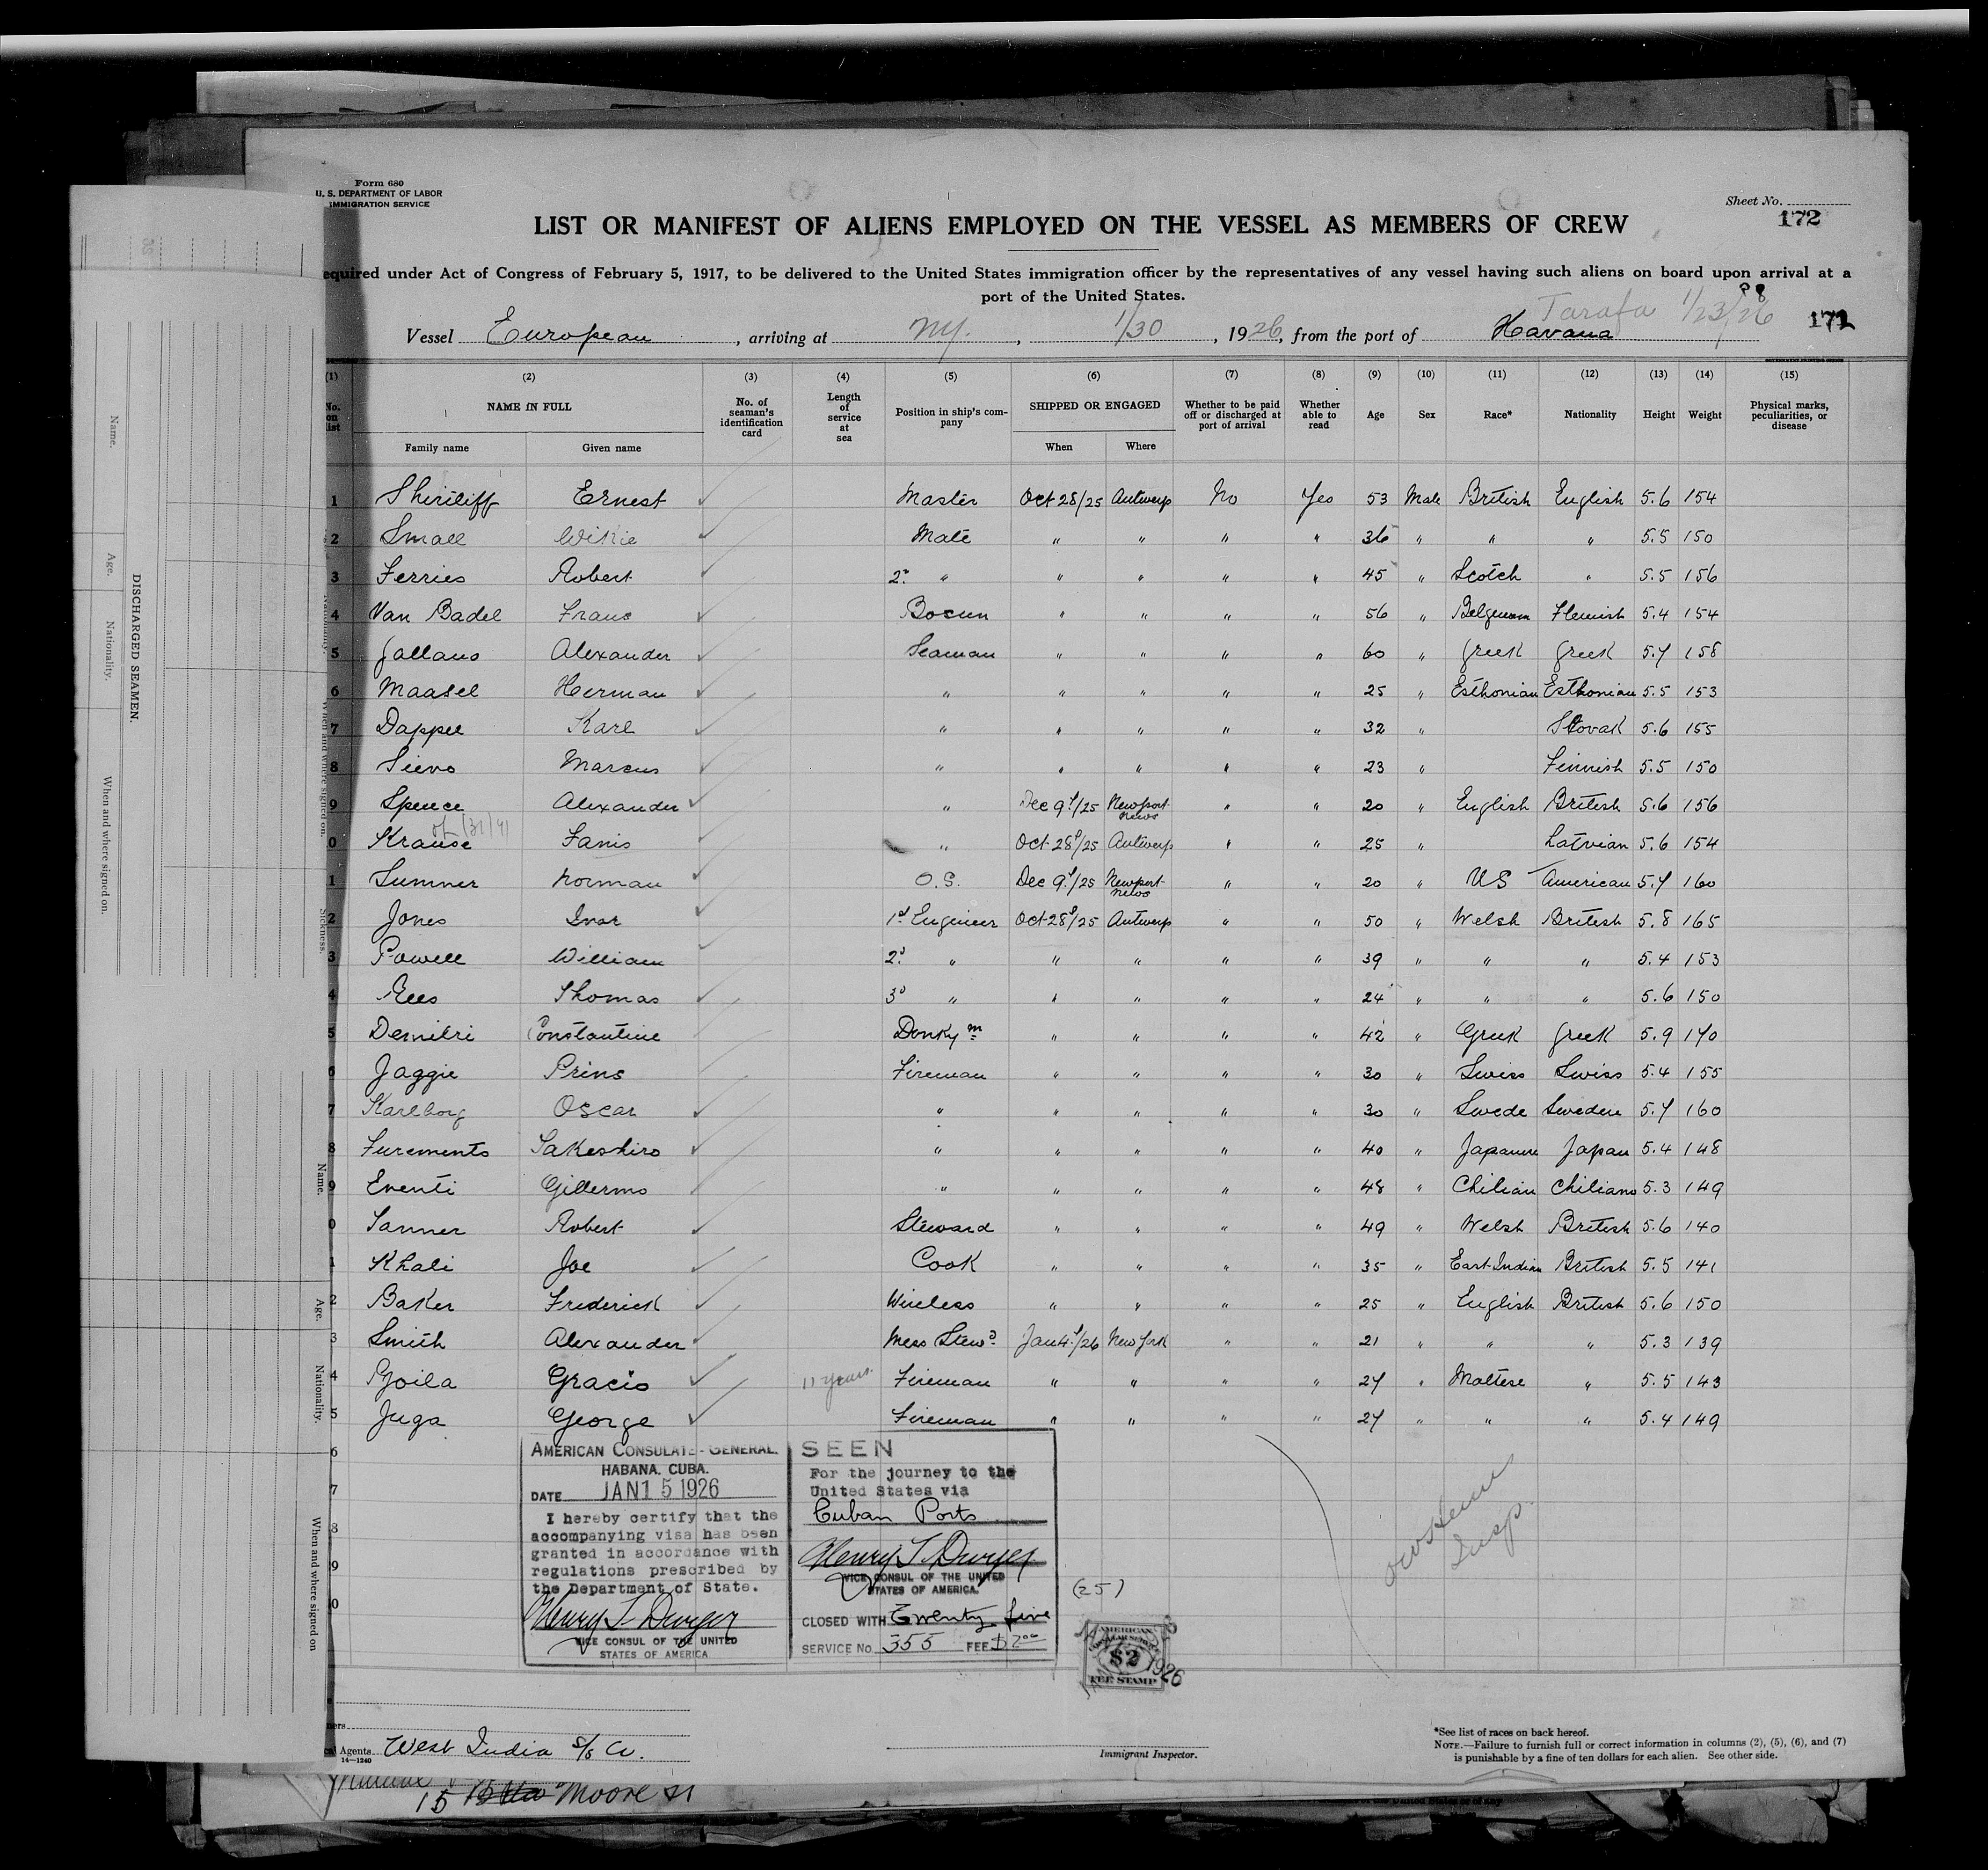 Form 680
U. S. DEPARTMENT OF LABOR
IMMIGRATION SERVICE
Sheet No.
172
LIST OR MANIFEST OF ALIENS EMPLOYED ON THE VESSEL AS MEMBERS OF CREW
equired under Act of Congress of February 5, 1917, to be delivered to the United States immigration officer by the representatives of any vessel having such aliens on board upon arrival at a
port of the United States.
Tarafa 1/23/26
Vessel European, arriving at NY., 1/30, 1926, from the port of Havana 172
(1) (2) (3) (4) (5) (6) (7) (8) (9) (10) (11) (12) (13) (14) (15)
No. on list NAME IN FULL No. of seaman's identification card Length of service at sea Position in ship's company SHIPPED OR ENGAGED Whether to be paid off or discharged at port of arrival Whether able to read Age Sex Race* Nationality Height Weight Physical marks, peculiarities, or disease
Family name Given name When Where
1 Shirtliff Ernest Master Oct 28/25 Antwerp No Yes 53 Male British English 5.6 154
2 Small Wilkie Mate " " " " 36 " " " 5.5 150
3 Ferries Robert 2d " " " " " 45 " Scotch " 5.5 156
4 Van Badel Frans Bosun " " " " 56 " Flemish 5.4 154
5 Jallaus Alexander Seaman " " " " 60 " Greek Greek 5.7 158
6 Maasel Herman " " " " " 25 " Esthonian Esthonian 5.5 153
7 Dappel Karl " " " " " 32 " Slovak 5.6 155
8 Sievo Marcus " " " " " 23 " Finnish 5.5 150
9 Spence Alexander " Dec 9/25 Newport News " " 20 " English British 5.6 156
0 Krause Janis " Oct 28/25 Antwerp " " 25 " Latvian 5.6 154
1 Sumner Norman O.S. Dec 9/25 Newport News " " 20 " US American 5.7 160
2 Jones Ivor 1st Engineer Oct 28/25 Antwerp " " 50 " Welsh British 5.8 165
3 Powell William 2d " " " " " 39 " " " 5.4 153
4 Rees Thomas 3d " " " " " 24 " " " 5.6 150
5 Demitri Constantine Donkym " " " " 42 " Greek Greek 5.9 170
6 Jaggie Prins Fireman " " " " 30 " Swiss Swiss 5.4 155
7 Karlborg Oscar " " " " " 30 " Swede Sweden 5.7 160
8 Furements Takeshiro " " " " " 40 " Japanese Japan 5.4 148
9 Eventi Gillermo " " " " " 48 " Chilian Chiliano 5.3 149
0 Tanner Robert Steward " " " " 49 " Welsh British 5.6 140
1 Khali Joe Cook " " " " 35 " East-Indian British 5.5 141
2 Baker Frederick Wireless " " " " 25 " English British 5.6 150
3 Smith Alexander Mess Stewd Jan 4/26 New York " " 21 " " " 5.3 139
4 Gracio 11 years. Fireman " " " " 27 " Maltese " 5.5 143
5 Juga George Fireman " " " " 27 " " " 5.4 149
6
7
8
9
0
AMERICAN CONSULATE-GENERAL.
HABANA. CUBA.
DATE JAN 15 1926
I hereby certify that the
accompanying visa has been
granted in accordance with
regulations prescribed by
the Department of State.
VICE CONSUL OF THE UNITED
STATES OF AMERICA
SEEN
For the journey to the
United States via
Cuban Ports
VICE CONSUL OF THE UNITED
STATES OF AMERICA.
CLOSED WITH Twenty five
SERVICE No. 355 FEE $2.00
(25)
Insp.
AMERICAN
$2
FEE STAMP
1926
Agents West India S/S Co.
14—1240
Immigrant Inspector.
*See list of races on back hereof.
NOTE.—Failure to furnish full or correct information in columns (2), (5), (6), and (7)
is punishable by a fine of ten dollars for each alien. See other side.
15 Moore St
DISCHARGED SEAMEN.
Name.
Age.
Nationality.
When and where signed on.
When and where signed on.
Sickness.
Name.
Age.
Nationality.
When and where signed on